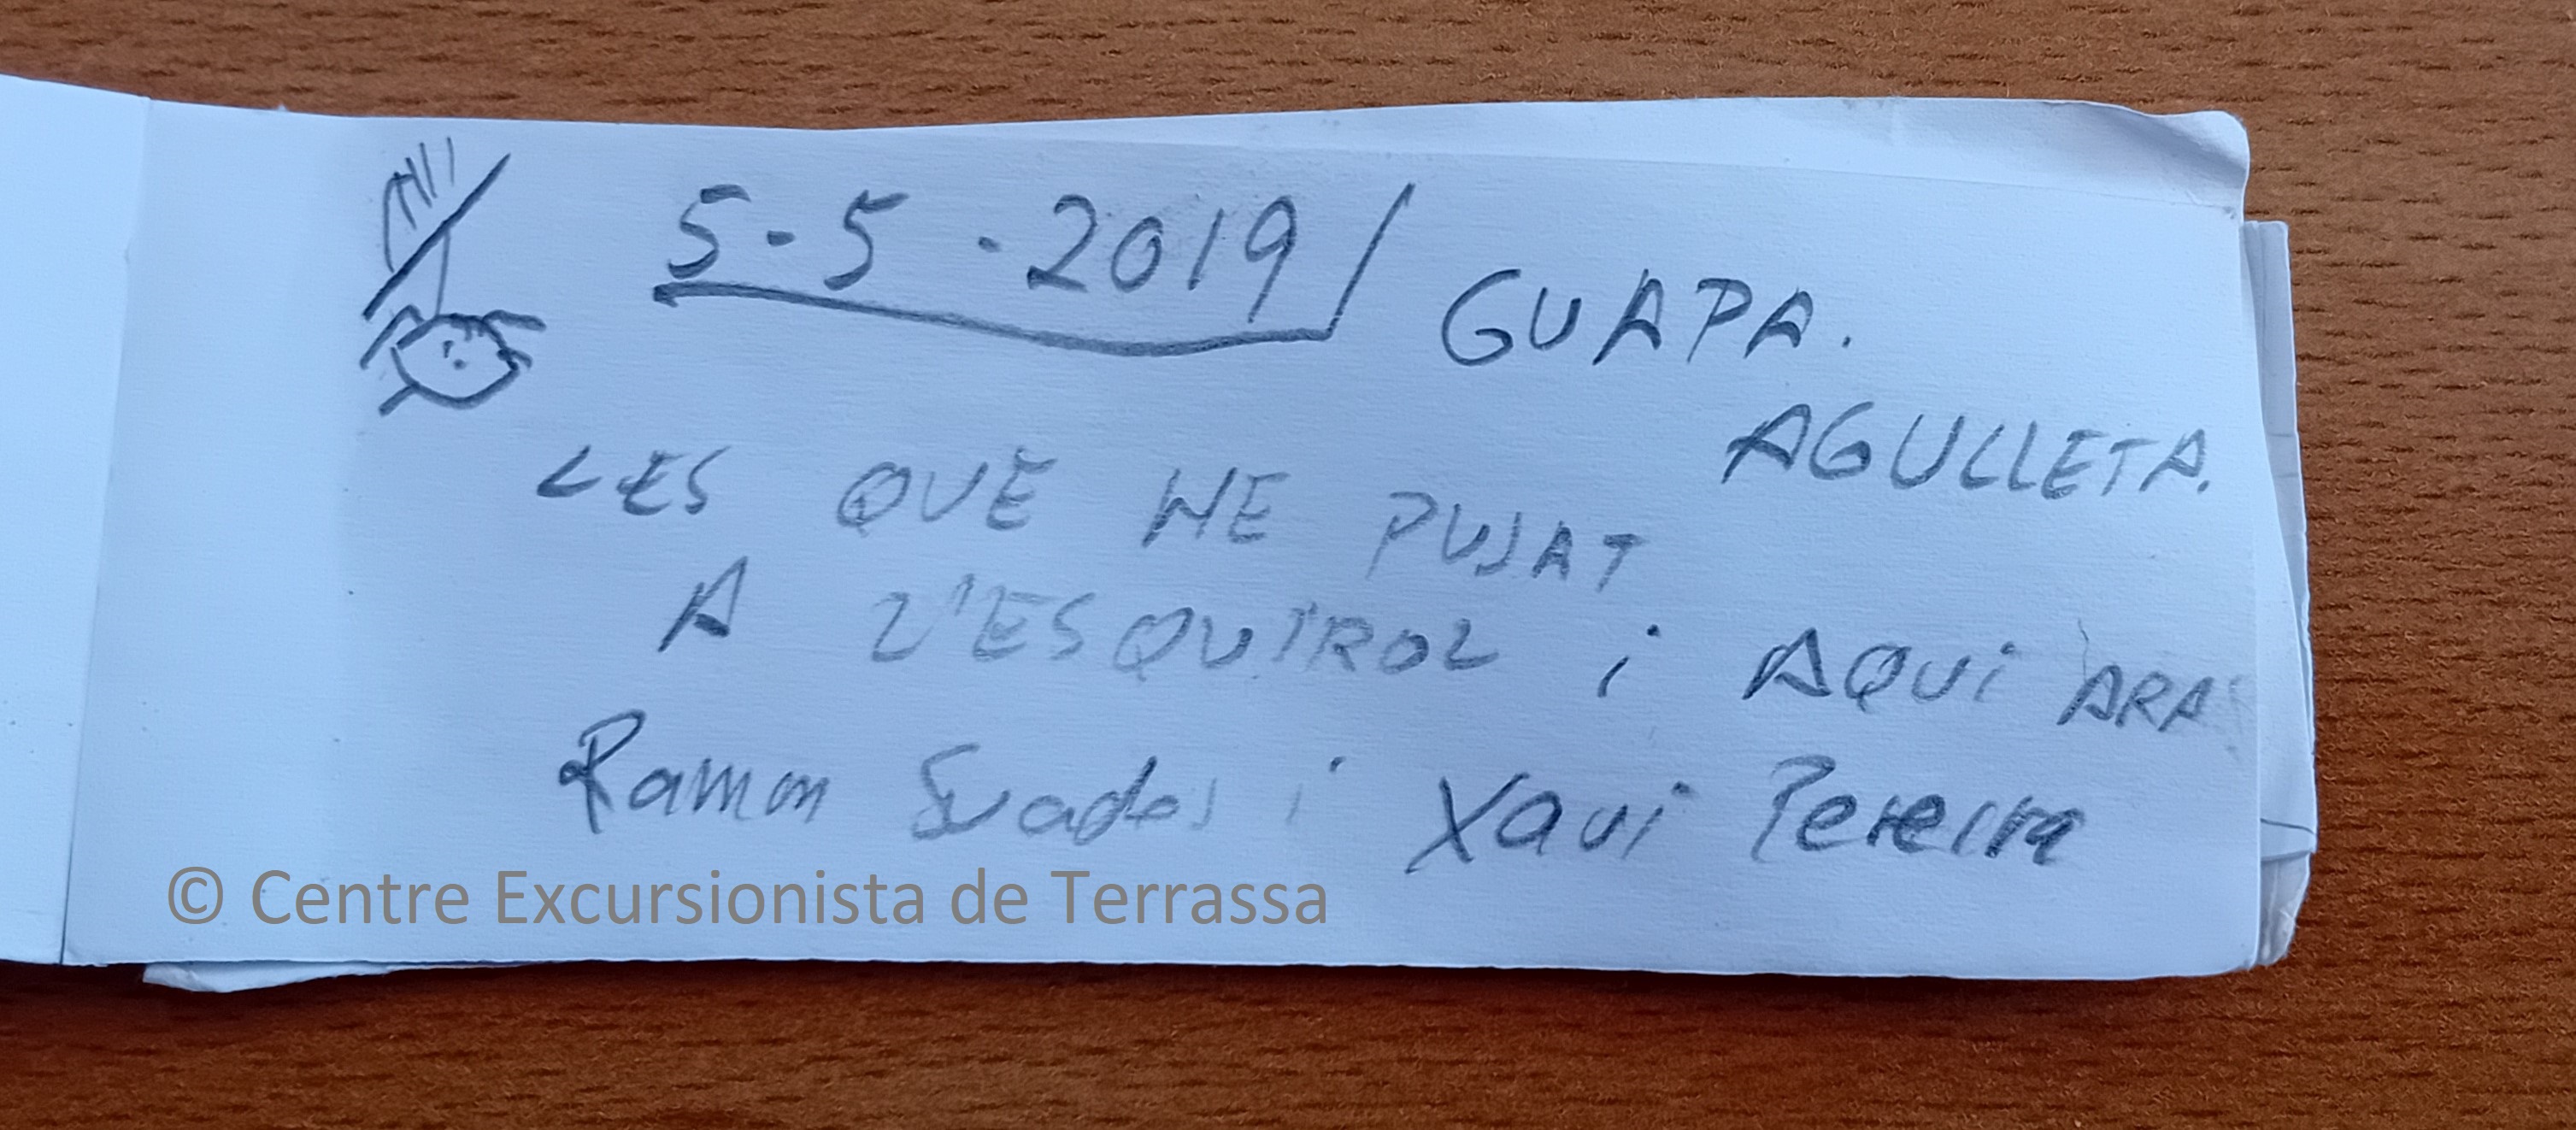 5-5-2019/
GUAPA.
AGULLETA.
LES QUE HE PUJAT
A L'ESQUIROL i AQUi ARA
Ramon i Xavi Pereira
© Centre Excursionista de Terrassa